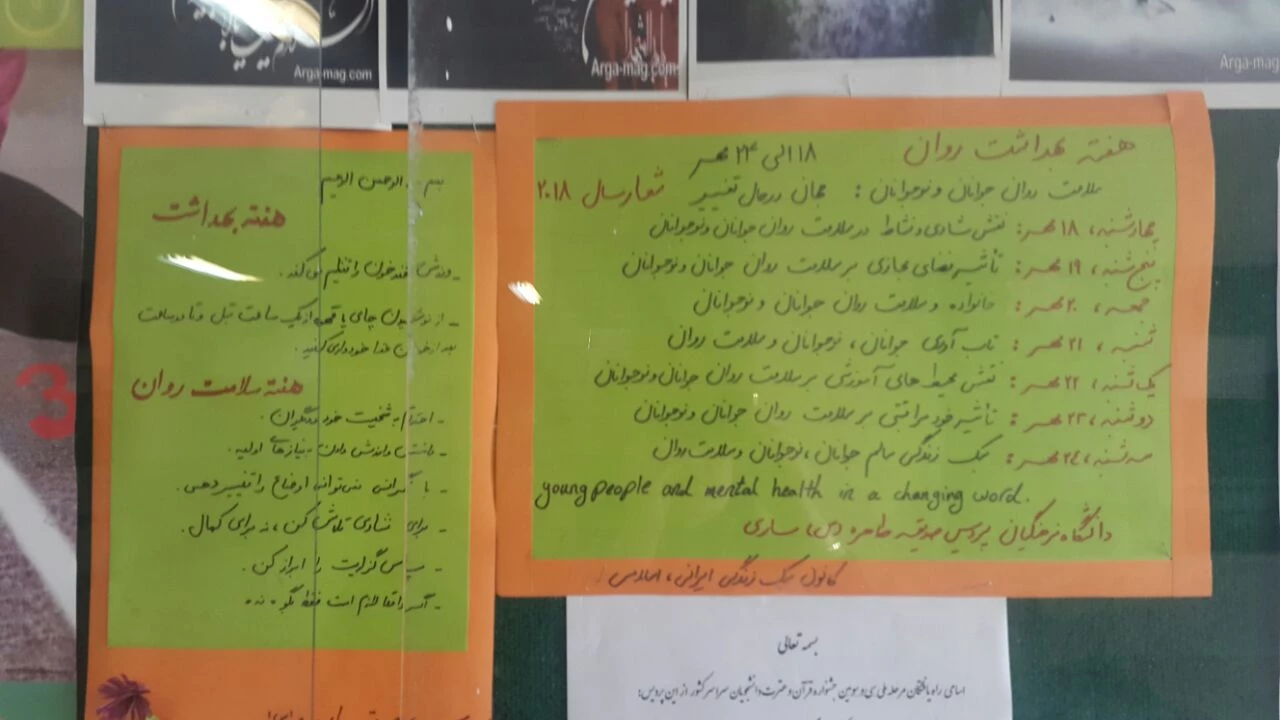 Arga-mag.com
Arga-mag.com
Arga-mag
هفته بهداشت روان ۱۸ الی ۲۴ مهر
سلامت روان جوانان و نوجوانان : جهان درحال تغییر شعار سال ۲۰۱۸
چهارشنبه، ۱۸ مهر: نقش شادی و نشاط در سلامت روان جوانان و نوجوانان
پنج شنبه، ۱۹ مهر: تأثیر فضای مجازی بر سلامت روان جوانان و نوجوانان
جمعه، ۲۰ مهر: خانواده و سلامت روان جوانان و نوجوانان
شنبه، ۲۱ مهر: تاب آوری جوانان، نوجوانان و سلامت روان
یک شنبه، ۲۲ مهر: نقش محیط های آموزشی بر سلامت روان جوانان و نوجوانان
دوشنبه، ۲۳ مهر: تأثیر خود مراقبتی بر سلامت روان جوانان و نوجوانان
سه شنبه، ۲۴ مهر: سبک زندگی سالم جوانان، نوجوانان و سلامت روان
young people and mental health in a changing word.
دانشگاه فرهنگیان پردیس صدیقه طاهره (س) ساری
کانون سبک زندگی ایرانی، اسلامی
بسم الرحمن الرحیم
هفته بهداشت
- ورزش قند خون را تنظیم می کند.
- از نوشیدن چای یا قهوه از یک ساعت قبل تا دو ساعت
بعد از خوردن غذا خودداری کنید.
هفته سلامت روان
- احترام به شخصیت خود و دیگران.
- نیازهای اولیه.
- با نگرانی نمی توانی اوضاع را تغییر دهی.
- برای شادی تلاش کن، نه برای کمال.
- سپاس گزاریت را ابراز کن.
- اگر واقعا لازم است فقط بگو نه
3
بسمه تعالی
اسامی راه یافتگان مرحله ملی سی و سومین جشنواره قرآن و عترت دانشجویان سراسر کشور از این پردیس: